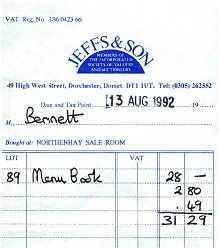 VAT Reg. No. 186 0423 66
JEFFS & SON
MEMBERS OF
THE INCORPORATED
SOCIETY OF VALUERS
AND AUCTIONEERS
49 High West Street, Dorchester, Dorset DT1 1UT. Tel: (0305) 262552
Date and Tax Point 13 AUG 1992 19
M Bennett
Bought at: NORTHENHAY SALE ROOM
LOT VAT
89 Menu Book 28 —
2 80
. 49
31 29